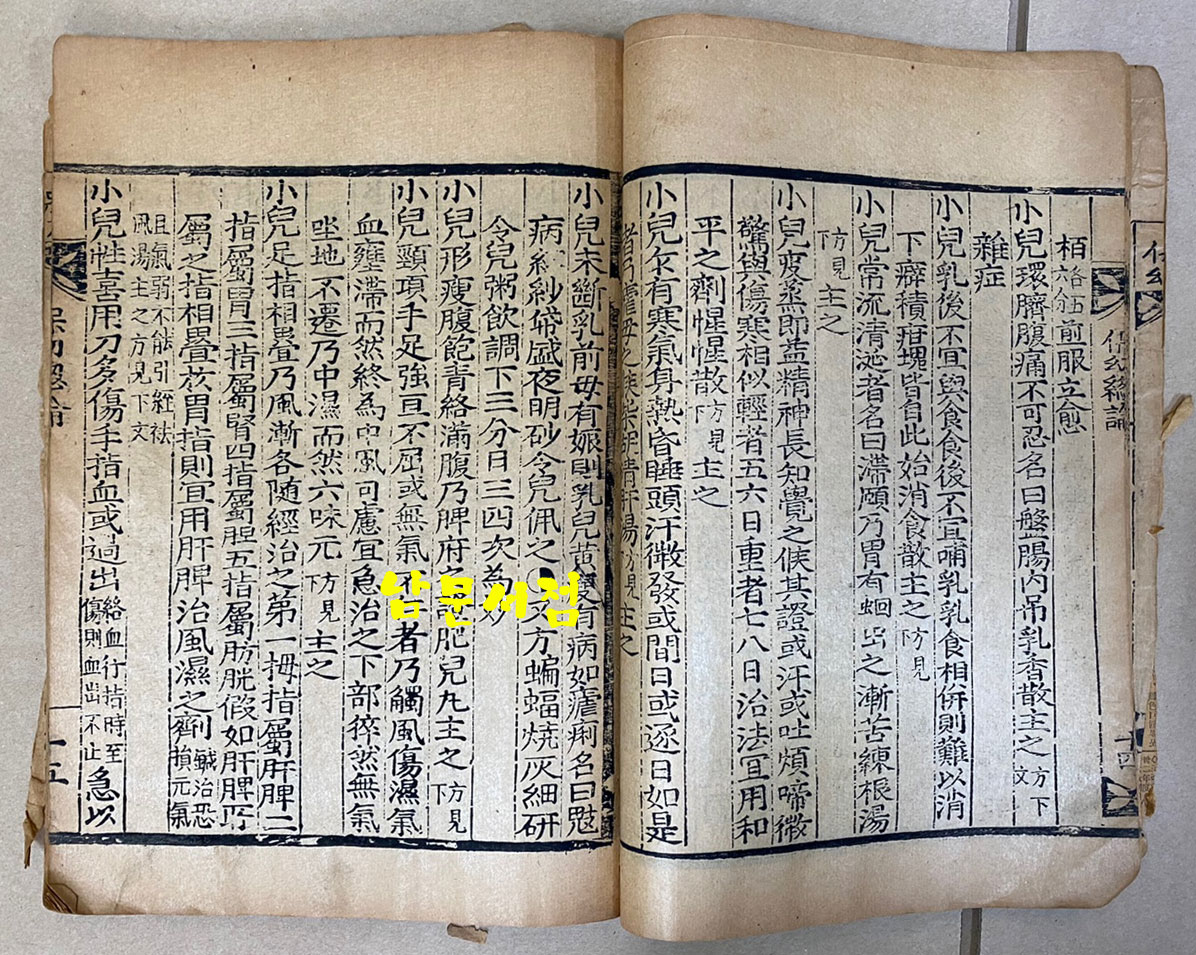 保幼總論
十四
栢各五六分前服立愈
小兒環臍腹痛不可忍名曰盤腸內吊乳香散主之方下文
雜症
小兒乳後不宜與食食後不宜哺乳乳食相倂則難以消
下癖積疳塊皆自此始消食散主之方見下
小兒常流清涎者名曰滯頤乃胃有蛔出之漸苦練根湯
主之方見下
小兒變蒸節益精神長知覺之候其證或汗或吐煩啼微
驚與傷寒相似輕者五六日重者七八日治法宜用和
平之劑惺惺散主之方見下
小兒乍有寒氣身熱昏睡頭汗微發或間日或逐日如是
者乃瘧母之漸柴胡清肝湯主之方見
小兒未斷乳前母有娠則乳兒黃瘦有病如瘧痢名曰鬾
病絳紗帒盛夜明砂令兒佩之又方蝙蝠燒灰細研
令兒粥飲調下三分日三四次為妙
小兒形瘦腹飽青絡滿腹乃脾府之證肥兒丸主之方見下
小兒頸項手足強直不屈或無氣不者乃觸風傷濕氣
血壅滯而然終為中風可慮宜急治之下部猝然無氣
坐地不遷乃中濕而然六味元主之方見下
小兒足指相疊乃風漸各隨經治之第一拇指屬肝脾二
指屬胃三指屬腎四指屬膽五指屬肪胱假如肝脾所
屬之指相疊於胃指則宜用肝脾治風濕之劑鍼治恐損元氣
且氣弱不能引經祛風湯主之方見下文
小兒性喜用刀多傷手指血或過出絡血行指時至傷則血出不止急以
保幼總論
十五
남문서점